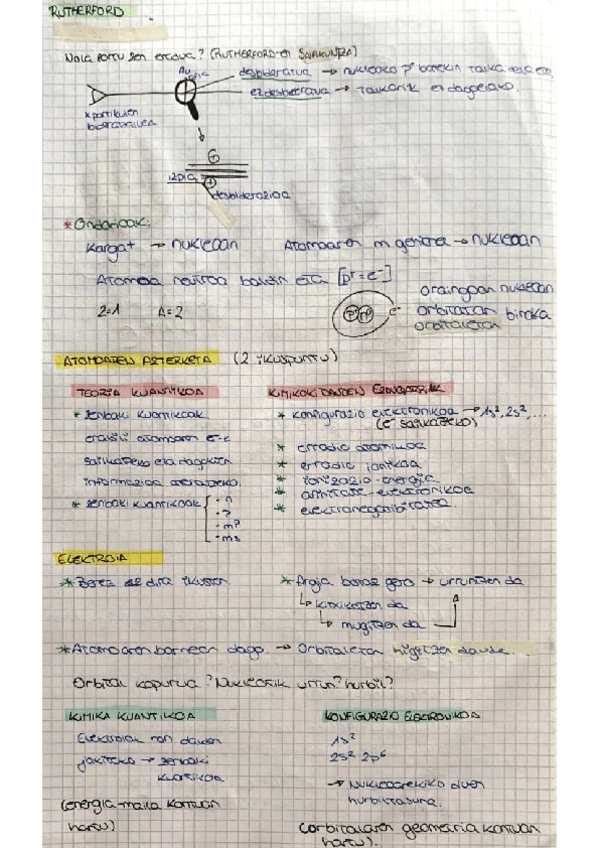 RUTHERFORD
Nola sortu zen eredua? (RUTHERFORD-en SAIAKUNTZA)
Au
desbideratua → nukleoko p⁺ batekin talka egin
ez desbideratua → talkarik ez dagoelako.
α partikulen
⊕
desbiderazioa
* Ondorioak:
Karga+ → nukleoan Atomoaren m gehiena → nukleoan
Atomoa neutroa baldin eta [p⁺=e⁻]
Z=1 A=2
e⁻
oraingoan nukleoan
orbitatan biraka
orbitaletan
ATOMOAREN AZTERKETA (2 ikuspuntu)
TEORIA KUANTIKOA
* Zenbaki kuantikoak
erabili atomoaren e⁻-k
sailkatzeko eta dagokien
informazioa ateratzeko.
* zenbaki kuantikoak
- n
- ms
KIMIKOKI DAUDEN EZAUGARRIAK
* konfigurazio elektronikoa → 1s², 2s², ...
(e⁻ sailkatzeko)
* erradio atomikoa
* erradio ionikoa
* ionizazio-energia
* afinitate-elektronikoa
* elektronegatibitatea.
ELEKTROIA
* Berez ez dira ikusten
* Argia baino gero → urruntzen da
↳ kitzikatzen da
↳ mugitzen da
* Atomoaren barnean dago. → Orbitaletan higitzen daude.
Orbital kopurua? Nukleotik urrun? hurbil?
KIMIKA KUANTIKOA
Elektroiak non dauden
jakiteko → zenbaki
kuantikoa
(energia-maila kontuan
hartu)
KONFIGURAZIO ELEKTRONIKOA
1s²
2s² 2p⁶
→ Nukleoarekiko duen
hurbiltasuna.
(orbitalaren geometria kontuan
hartu).